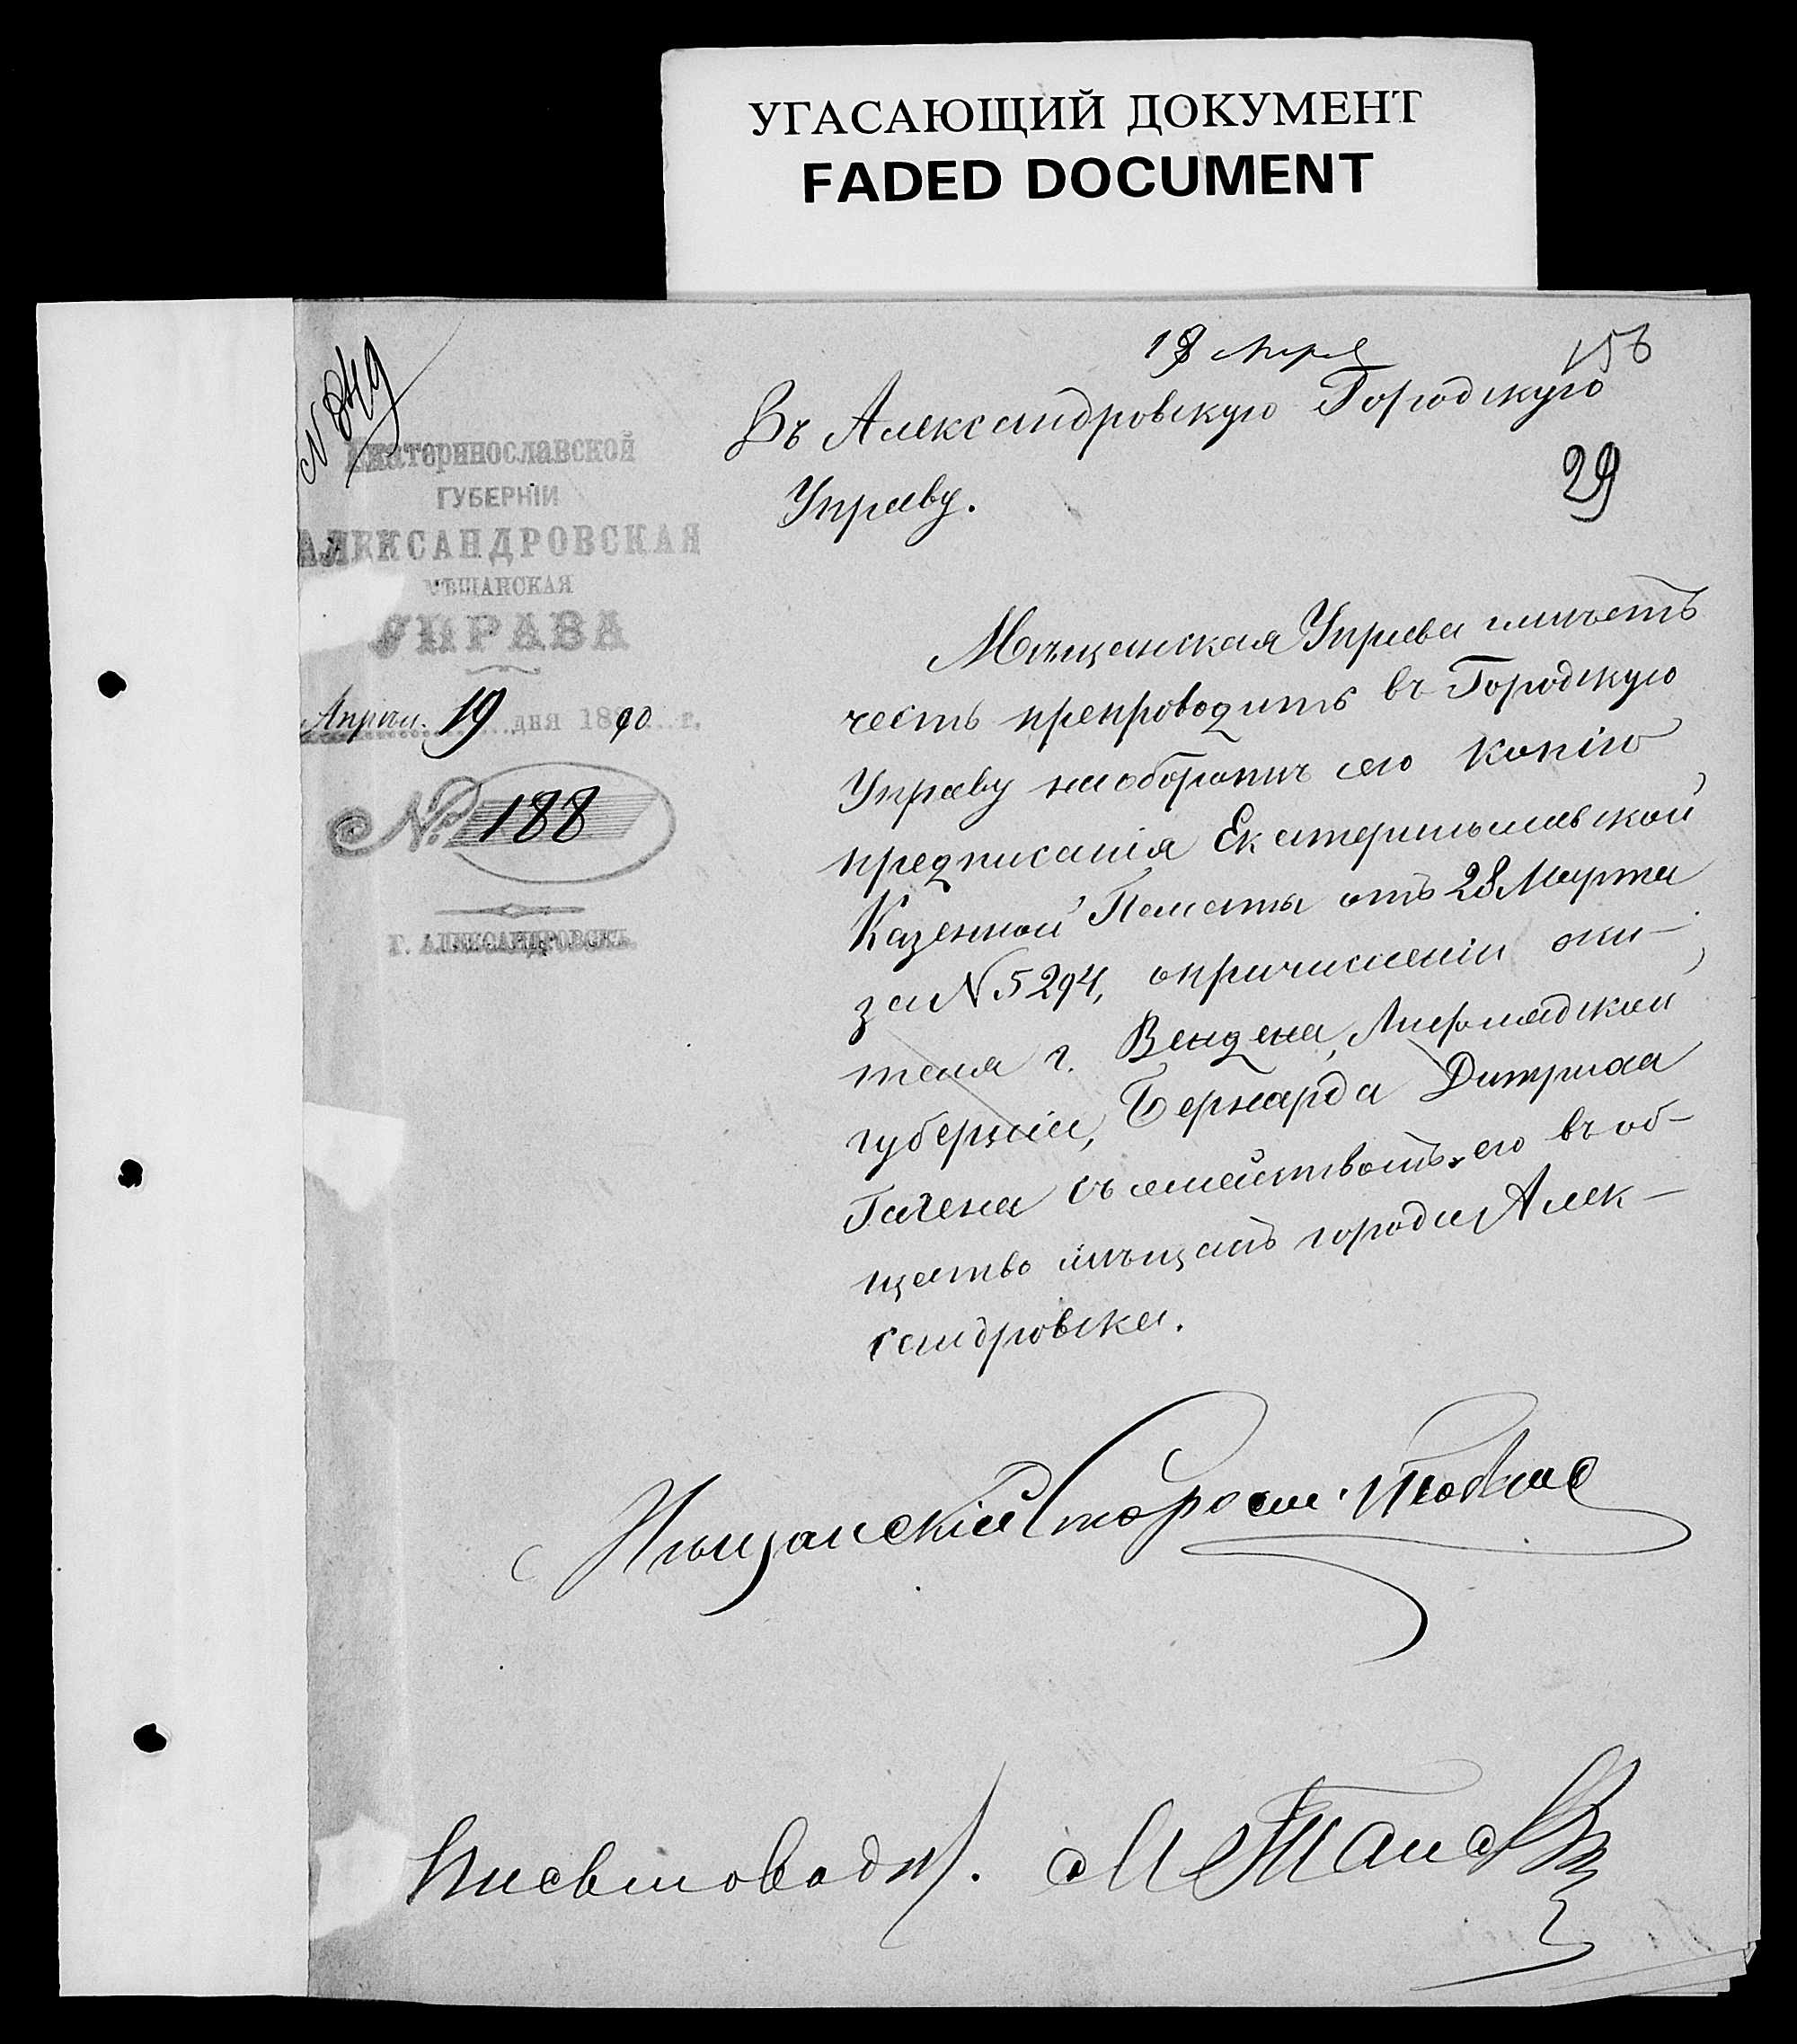 УГАСАЮЩИЙ ДОКУМЕНТ
FADED DOCUMENT
156
29
Екатеринославской
ГУБЕРНІИ
АЛЕКСАНДРОВСКАЯ
МѢЩАНСКАЯ
УПРАВА
Апрѣл. 19 дня 1890 г.
№ 188
Г. АЛЕКСАНДРОВСКЪ.
Въ Александровскую Городскую
Управу.
Мѣщанская Управа имѣетъ
честь препроводить въ Городскую
Управу наоборотѣ сего копію
предписанія Екатеринославской
Казенной Палаты отъ 28 Марта
за N 5294, опричисленіи жи-
теля г. Вендена, Лифляндской
губерніи, Бернарда Дитриха
Гагена съ семействомъ его въ об-
щество мѣщанъ города Алек-
сандровска.
Мѣщанскій Старост.
Письмовод.